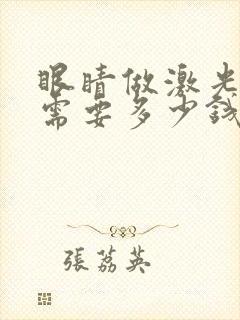 眼睛做激光
需要多少钱
張荔英